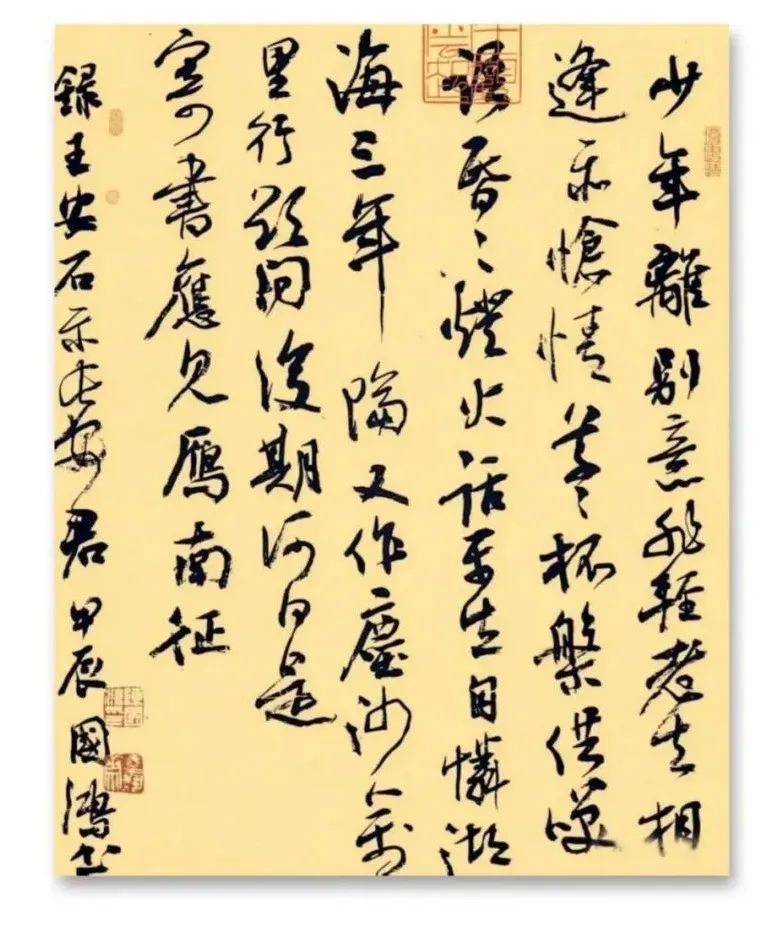 少年離別意非輕老去相
逢亦愴情草〻杯盤供咲
語昏〻燈火話平生自憐湖
海三年隔又作塵沙萬
里行欲問後期何日是
寄書應見鴈南征
錄王安石示長安君甲辰國鴻書